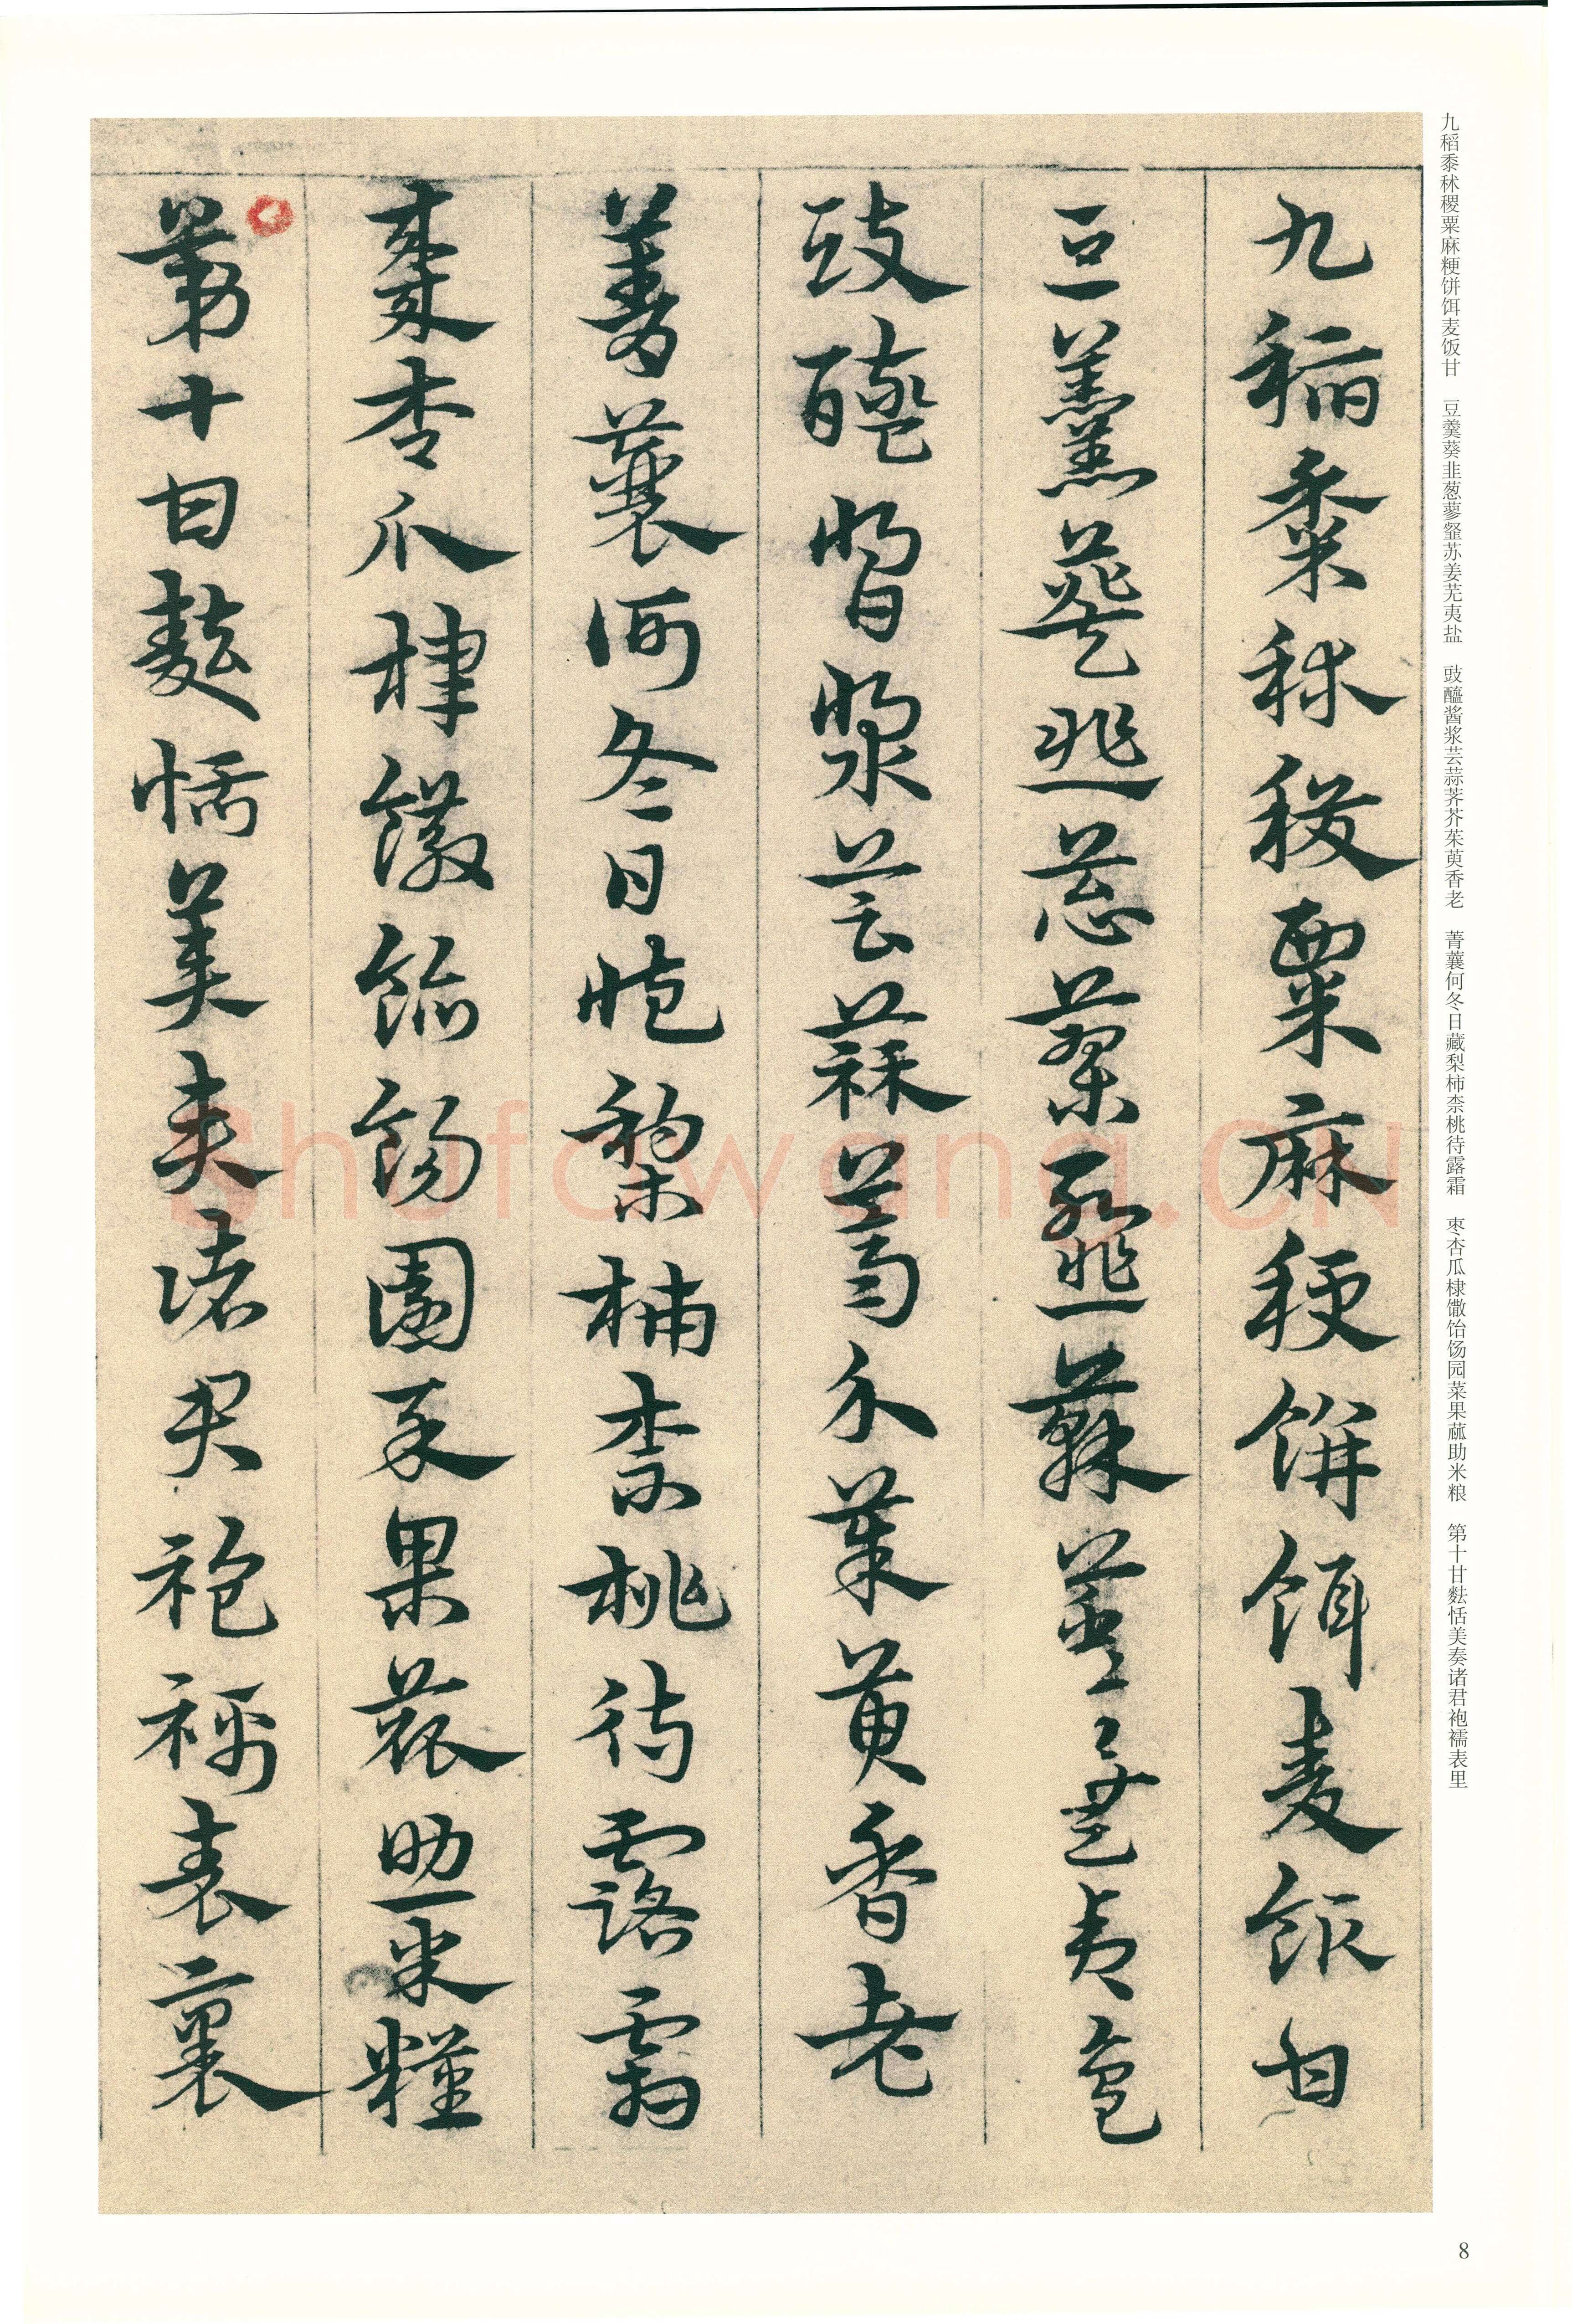 九稻黍秫稷粟麻粳饼饵麦饭甘　豆羹葵韭葱蓼韰苏姜芜夷盐　豉醯酱浆芸蒜荠芥茱萸香老　菁蘘何冬日藏梨柿柰桃待露霜　枣杏瓜棣馓饴饧园菜果蓏助米粮　第十甘麮恬美奏诸君袍襦表里
九稻黍秫稷粟麻粳餅餌麦飯甘
豆羹葵韭葱蓼韰蘇薑蕪夷鹽
豉醯醬漿芸蒜薺芥茱萸香老
菁蘘何冬日藏梨柿柰桃待露霜
棗杏瓜棣饊飴餳園菜果蓏助米糧
第十甘麮恬美奏諸君袍襦表裏
Shufawang.CN
8